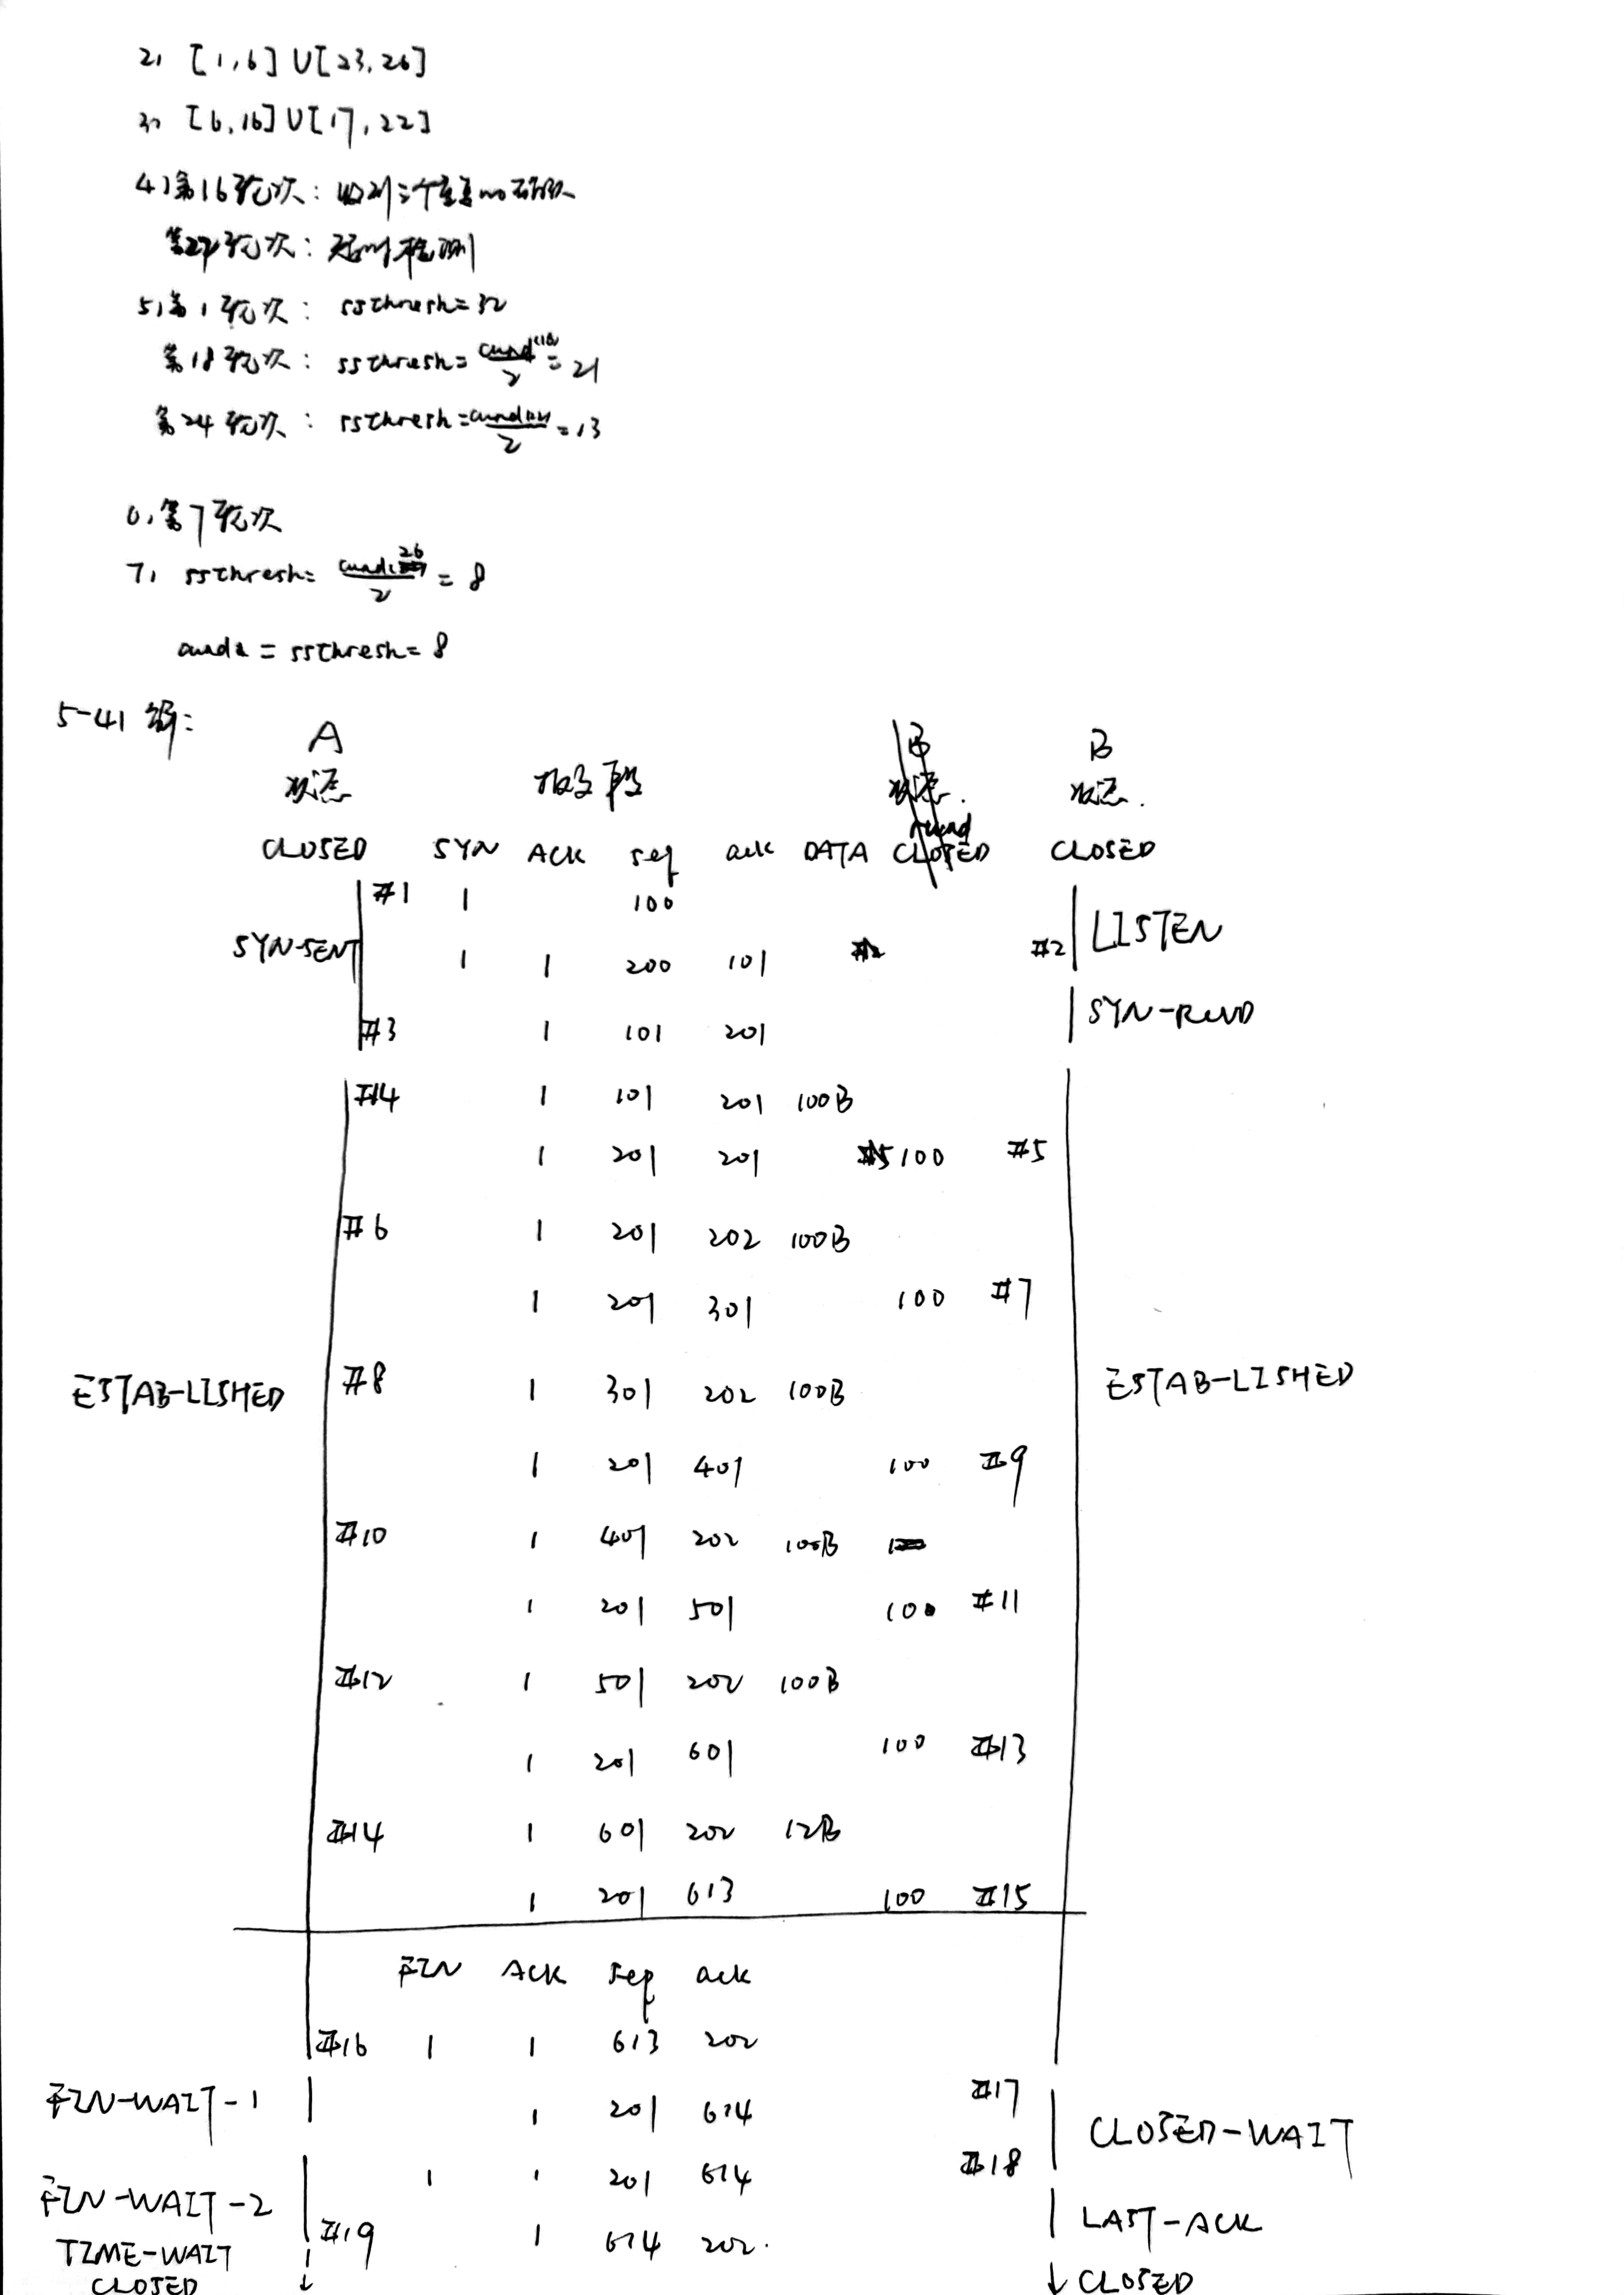 2, [1,6]U[23,26]
3, [6,16]U[17,22]
4,第16轮次: 收到三个重复的确认
第22轮次: 超时检测
5,第1轮次: ssthresh=32
第18轮次: ssthresh= cwnd(18)/2 = 21
第24轮次: ssthresh= cwnd(24)/2 = 13
6,第7轮次
7, ssthresh= cwnd(26)/2 = 8
cwnd = ssthresh= 8
5-41 解:
A B B
状态 报文段 状态. 状态.
CLOSED SYN ACK seq ack DATA rwnd CLOSED CLOSED
#1 1 100
SYN-SENT 1 1 200 101 #2 LISTEN
#3 1 101 201 SYN-RCVD
#4 1 101 201 100B
1 201 201 100 #5
#6 1 201 202 100B
1 201 301 100 #7
ESTAB-LISHED #8 1 301 202 100B ESTAB-LISHED
1 201 401 100 #9
#10 1 401 202 100B
1 201 501 100 #11
#12 1 501 202 100B
1 201 601 100 #13
#14 1 601 202 12B
1 201 613 100 #15
FIN ACK seq ack
#16 1 1 613 202
FIN-WAIT-1 1 201 614 #17 CLOSED-WAIT
FIN-WAIT-2 1 1 201 614 #18
#19 1 614 202. LAST-ACK
TIME-WAIT
CLOSED CLOSED